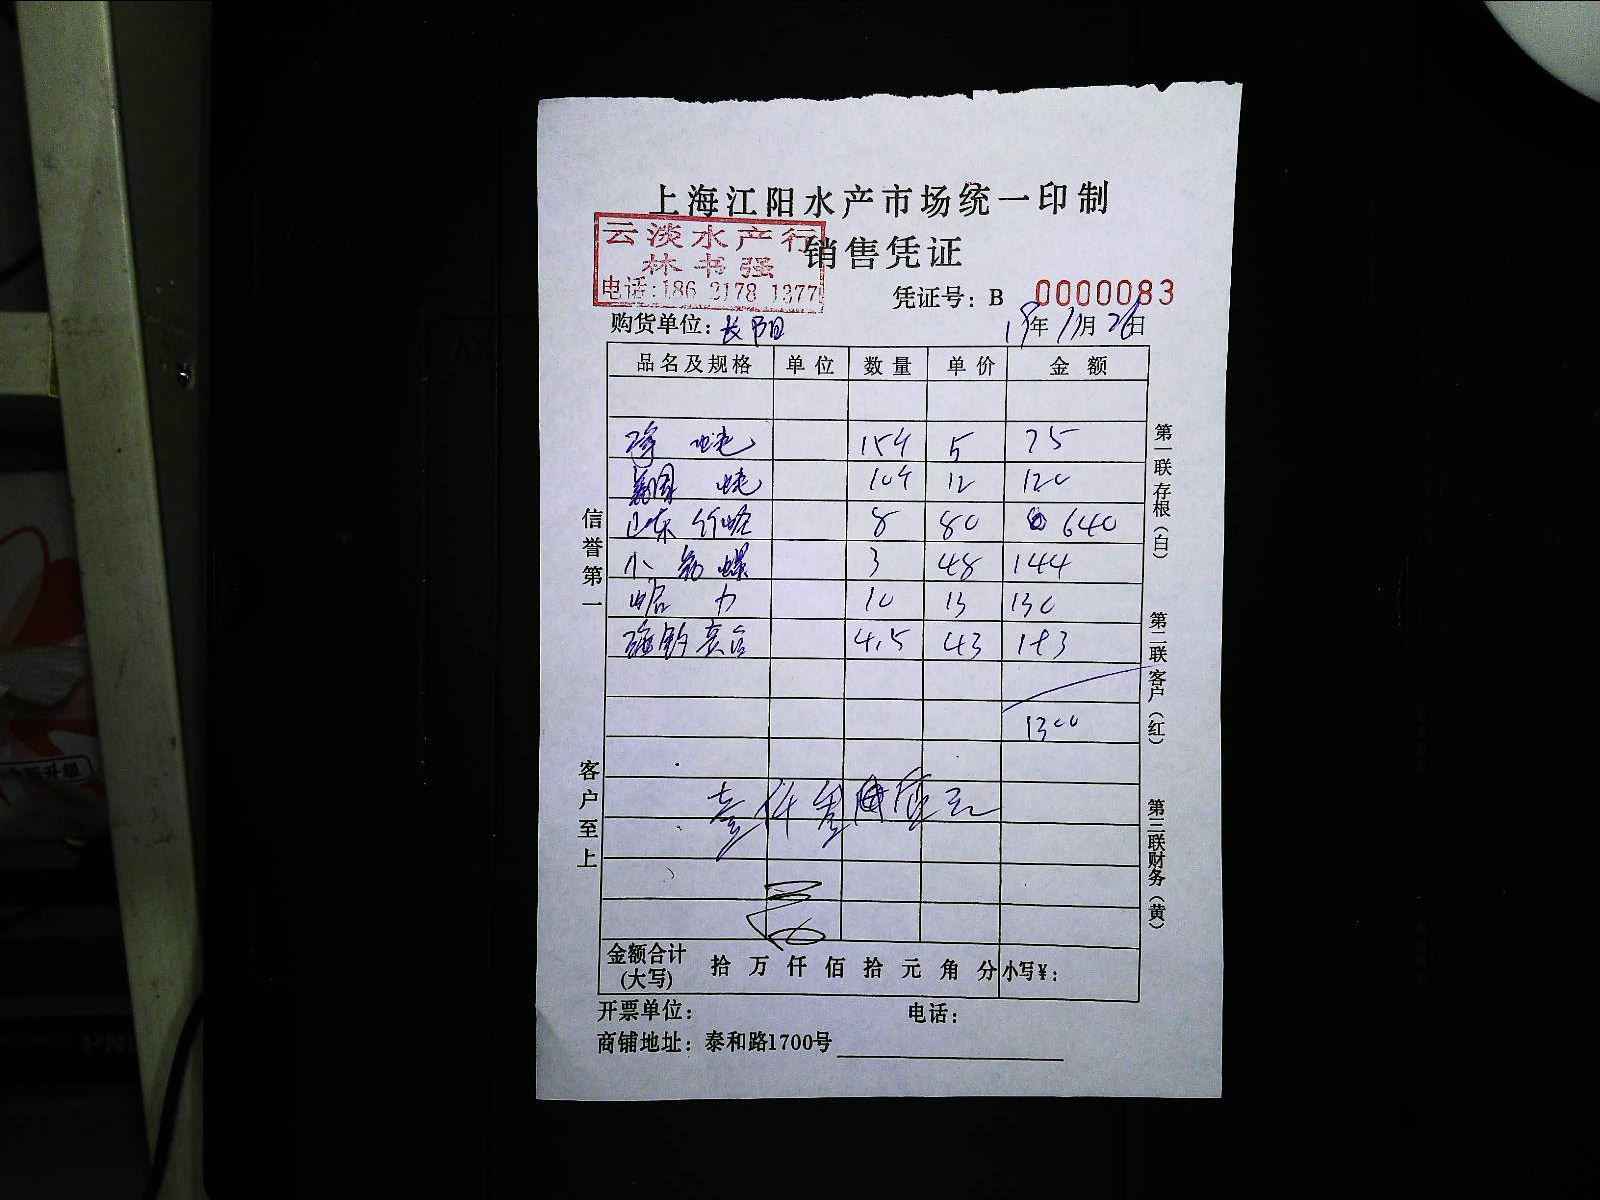 上海江阳水产市场统一印制
云淡水产行
林书强
电话:186 2178 1377
销售凭证
凭证号：B 0000083
购货单位：长阳 19年11月26日
品名及规格 单位 数量 单价 金额
15斤 5 75
10斤 12 120
山东 8 80 640
小 螺 3 48 144
10 13 130
4.5 43 193
1300
壹仟叁佰 元
金额合计(大写) 拾 万 仟 佰 拾 元 角 分 小写¥：
开票单位： 电话：
商铺地址：泰和路1700号
信誉第一
客户至上
第一联 存根（白）
第二联 客户（红）
第三联 财务（黄）
全新升级